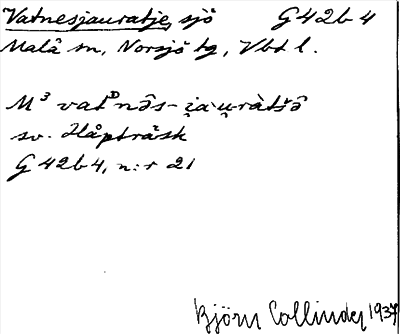 Vatnesjauratje, sjö G42b4
Malå sn, Norsjö tg, Vbtl.
M³ vatᴰnə̂s-i̯au̯ràtšə̂
sv. Håpträsk
G42b4, n:r 21
Björn Collinder 1937